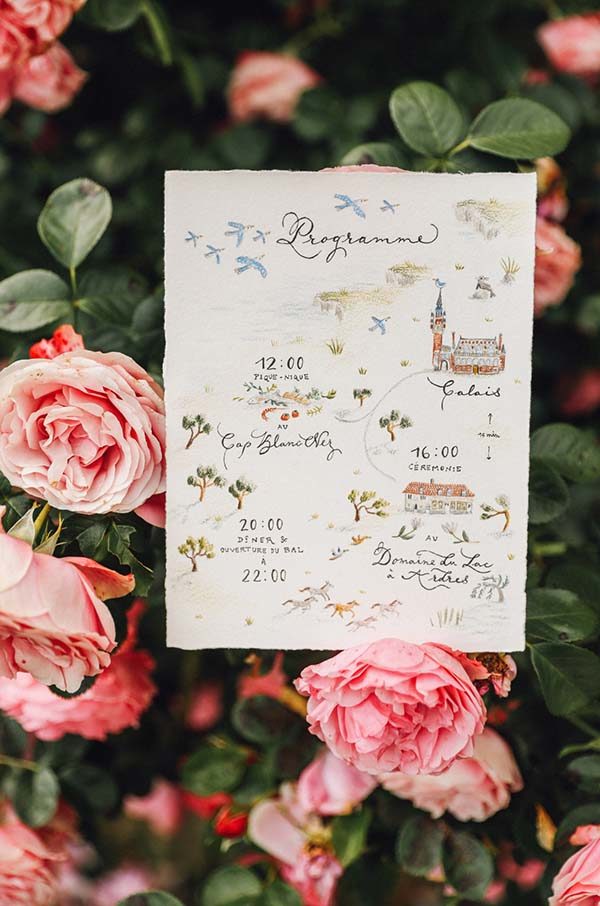 Programme
12:00
PIQUE-NIQUE
AU
Cap Blanc Nez
Calais
16:00
CÉRÉMONIE
AU
Domaine du Lac
à Ardres
20:00
DÎNER &
OUVERTURE DU BAL
À
22:00